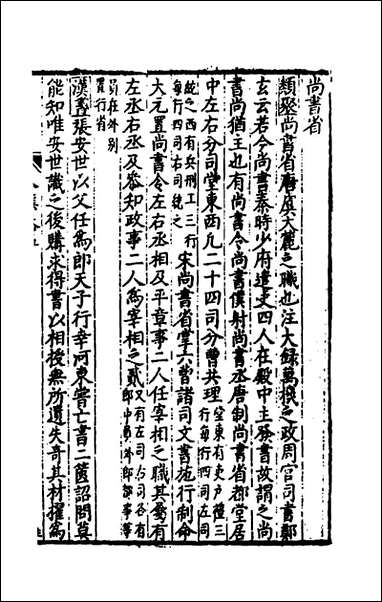 尚書省
類聚尚書省唐虞大麓之職也注大録萬機之政周官司書鄭
玄云若今尚書秦時少府遣吏四人在殿中主發書故謂之尚
書尚猶主也有尚書令尚書僕射尚書丞唐制尚書省都堂居
中左右分司堂東西凡二十四司分曹共理堂東有吏户禮三
行每行四司左司
統之西有兵刑工三行
每行四司右司統之宋尚書省掌六曹諸司文書施行制命
大元置尚書令左右丞相及平章事二人任宰相之職其屬有
左丞右丞及叅知政事二人爲宰相之貳又有左司右司各有
郎中員外郎都事等
員在外别
置行省
漢書張安世以父任爲郎天子行幸河東嘗亡書二篋詔問莫
能知唯安世識之後購求得書以相授無所遺失竒其材擢爲